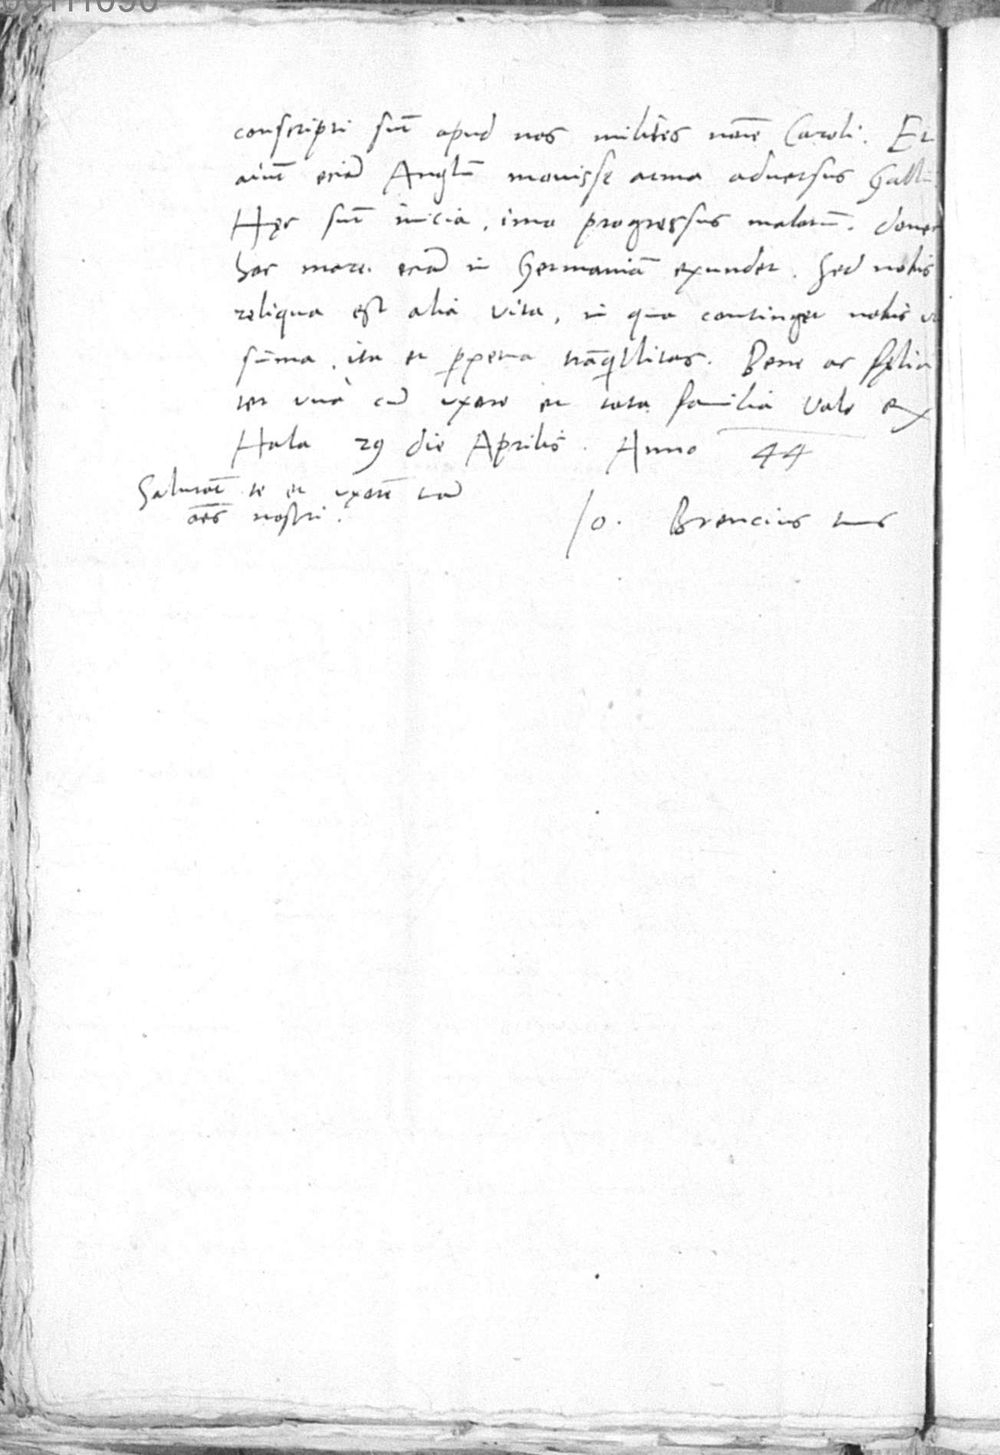 conscripti sūt apud nos milites noīe Caroli. Et
aiūt eciā Anglū mouisse arma aduersus Gallū
Hęc sūt inicia, imo progressus malorū. donec
hoc mare eciā in Germaniā exundet. Sed nobis
reliqua est alia vita, in qua continget nobis vt
sūma, ita et ꝑpetua trāqllitas. Bene ac felici
ter vnà cū vxore et tota familia vale ex
Hala 29 die Aprilis. Anno 44
Salutāt te et vxorē tuā
oēs nostri.
Jo. Brencius tuus